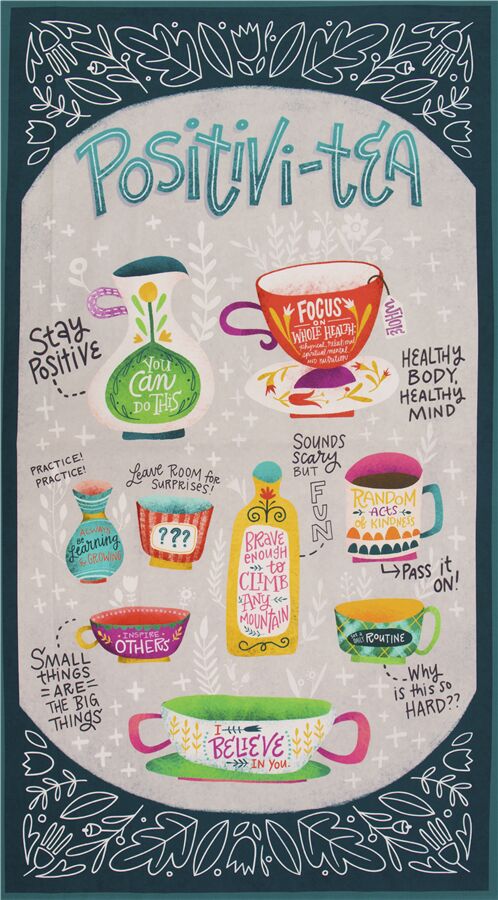 Positivi-tea
Stay
Positive
You
Can
Do This
FOCUS
ON
WHOLE HEALTH:
physical, relational
spiritual, mental
and nutrition
WHOLE
HEALTHY
BODY,
HEALTHY
MIND
PRACTICE!
PRACTICE!
ALWAYS
Be
Learning
& GROWING
Leave Room for
SURPRISES!
???
SOUNDS
Scary
BUT
FUN
BRAVE
enough
to
CLIMB
Any
MOUNTAIN
RANDOM
ACTS
of KINDNESS
Pass it
ON!
INSPIRE
OTHERS
SMALL
THINGS
ARE
THE BIG
THINGS
SET A
DAILY ROUTINE
Why
is this so
HARD??
I
BELIEVE
IN YOU.